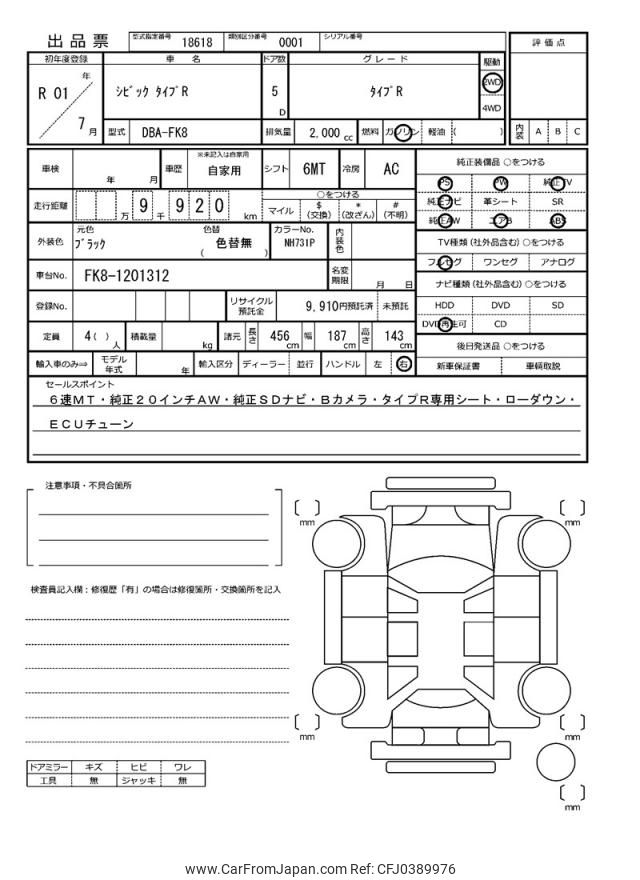 出品票 型式指定番号 18618 類別区分番号 0001 シリアル番号
評価点
初年度登録 車名 ドア数 グレード 駆動
R 01 年 7 月
シビック タイプR 5 D タイプR 2WD 4WD
型式 DBA-FK8 排気量 2,000 cc 燃料 ガソリン 軽油 ( )
内装 A B C
車検 年 月 車歴 ※未記入は自家用 自家用 シフト 6MT 冷房 AC
純正装備品 ○をつける
PS PW 純正TV
純正ナビ 革シート SR
純正AW エアB ABS
走行距離 万 9 千 9 2 0 km
○をつける
マイル $ (交換) * (改ざん) # (不明)
外装色 元色 ブラック 色替 ( 色替無 ) カラーNo. NH731P 内装色
TV種類 (社外品含む) ○をつける
フルセグ ワンセグ アナログ
車台No. FK8-1201312 名変期限 月 日
ナビ種類 (社外品含む) ○をつける
HDD DVD SD
DVD再生可 CD
登録No. リサイクル預託金 9,910 円預託済 未預託
定員 4 ( ) 人 積載量 kg 諸元 長さ 456 cm 幅 187 cm 高さ 143 cm
後日発送品 ○をつける
新車保証書 車輌取説
輸入車のみ⇒ モデル年式 年 輸入区分 ディーラー 並行 ハンドル 左 右
セールスポイント
６速ＭＴ・純正２０インチＡＷ・純正ＳＤナビ・Ｂカメラ・タイプＲ専用シート・ローダウン・
ＥＣＵチューン
注意事項・不具合箇所
検査員記入欄：修復歴「有」の場合は修復箇所・交換箇所を記入
ドアミラー キズ ヒビ ワレ
工具 無 ジャッキ 無
mm
mm
mm
mm
mm
www.CarFromJapan.com Ref: CFJ0389976